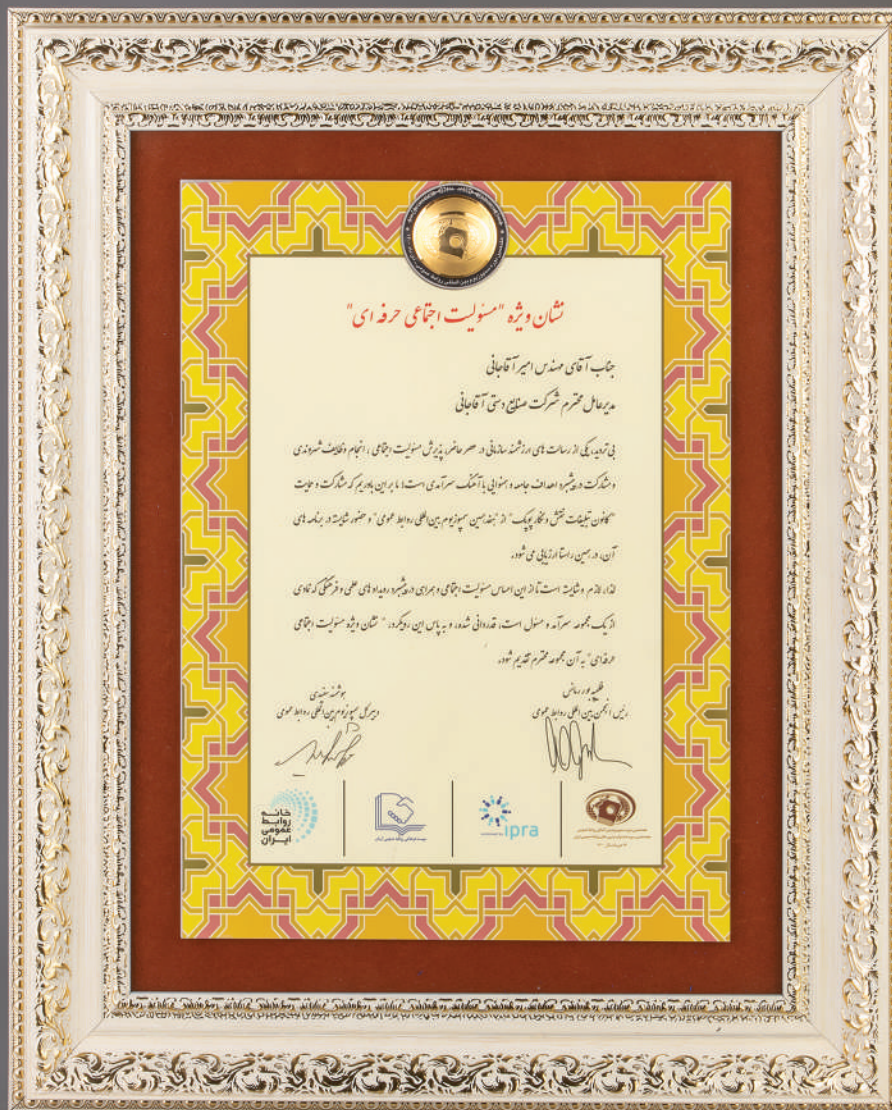 نشان ویژه "مسئولیت اجتماعی حرفه ای"
جناب آقای مهندس امیر آقاجانی
مدیرعامل محترم شرکت صنایع دستی آقاجانی
بی تردید، یکی از رسالت های ارزشمند سازمانی در عصر حاضر، پذیرش مسئولیت اجتماعی، انجام وظایف شهروندی
و مشارکت در پیشبرد اهداف جامعه و همنوایی با آهنگ سرآمدی است؛ ما بر این باوریم که مشارکت و حمایت
"کانون تبلیغات نقش و نگار پوپک" از "هفدهمین سمپوزیوم بین المللی روابط عمومی" و حضور شایسته در برنامه های
آن، در همین راستا ارزیابی می شود.
لذا، لازم و شایسته است تا از این احساس مسئولیت اجتماعی و همراهی در پیشبرد رویداد های علمی و فرهنگی که نمادی
از یک مجموعه سرآمد و مسئول است، قدردانی شده، و به پاس این رویکرد، "نشان ویژه مسئولیت اجتماعی
حرفه ای" به آن مجموعه محترم تقدیم شود.
هوشمند سفیدی
دبیرکل سمپوزیوم بین المللی روابط عمومی
رئیس انجمن بین المللی روابط عمومی
ipra
خانه
روابط
عمومی
ایران